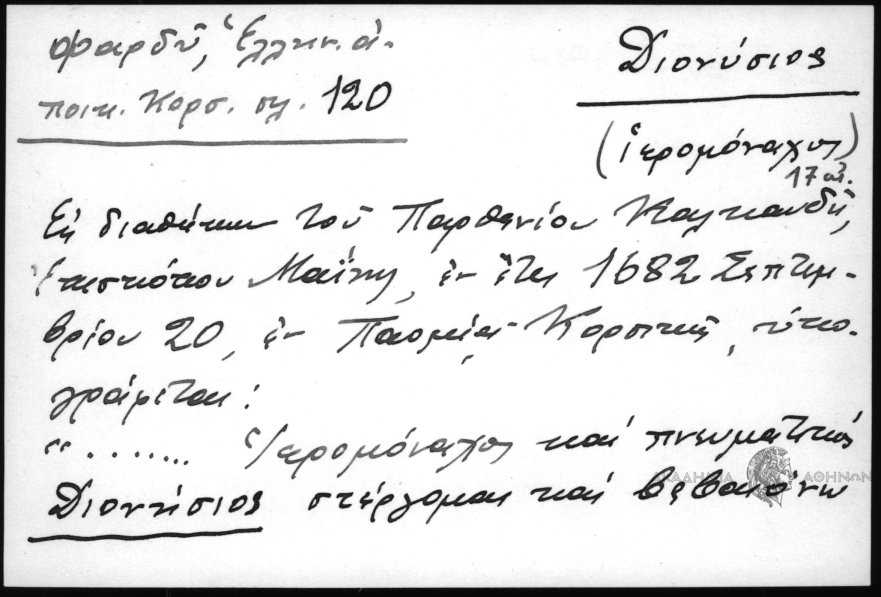 Φαρδῦ, Ἑλλην. ἀ-
ποικ. Κορσ. σελ. 120
Διονύσιος
(ἱερομόναχος)
17 αἰ.
Εἰς διαθήκην τοῦ Παρθενίου Καλκανδῆ,
Ἐπισκόπου Μαΐνης, ἐν ἔτει 1682 Σεπτεμ-
βρίου 20, ἐν Παομίᾳ Κορσικῆς, ὑπο-
γράφεται:
"........ Ἱερομόναχος καί πνευματικός
Διονύσιος στέργομαι καί βεβαιόνω
ΑΚΑΔΗΜΙΑ ΑΘΗΝΩΝ